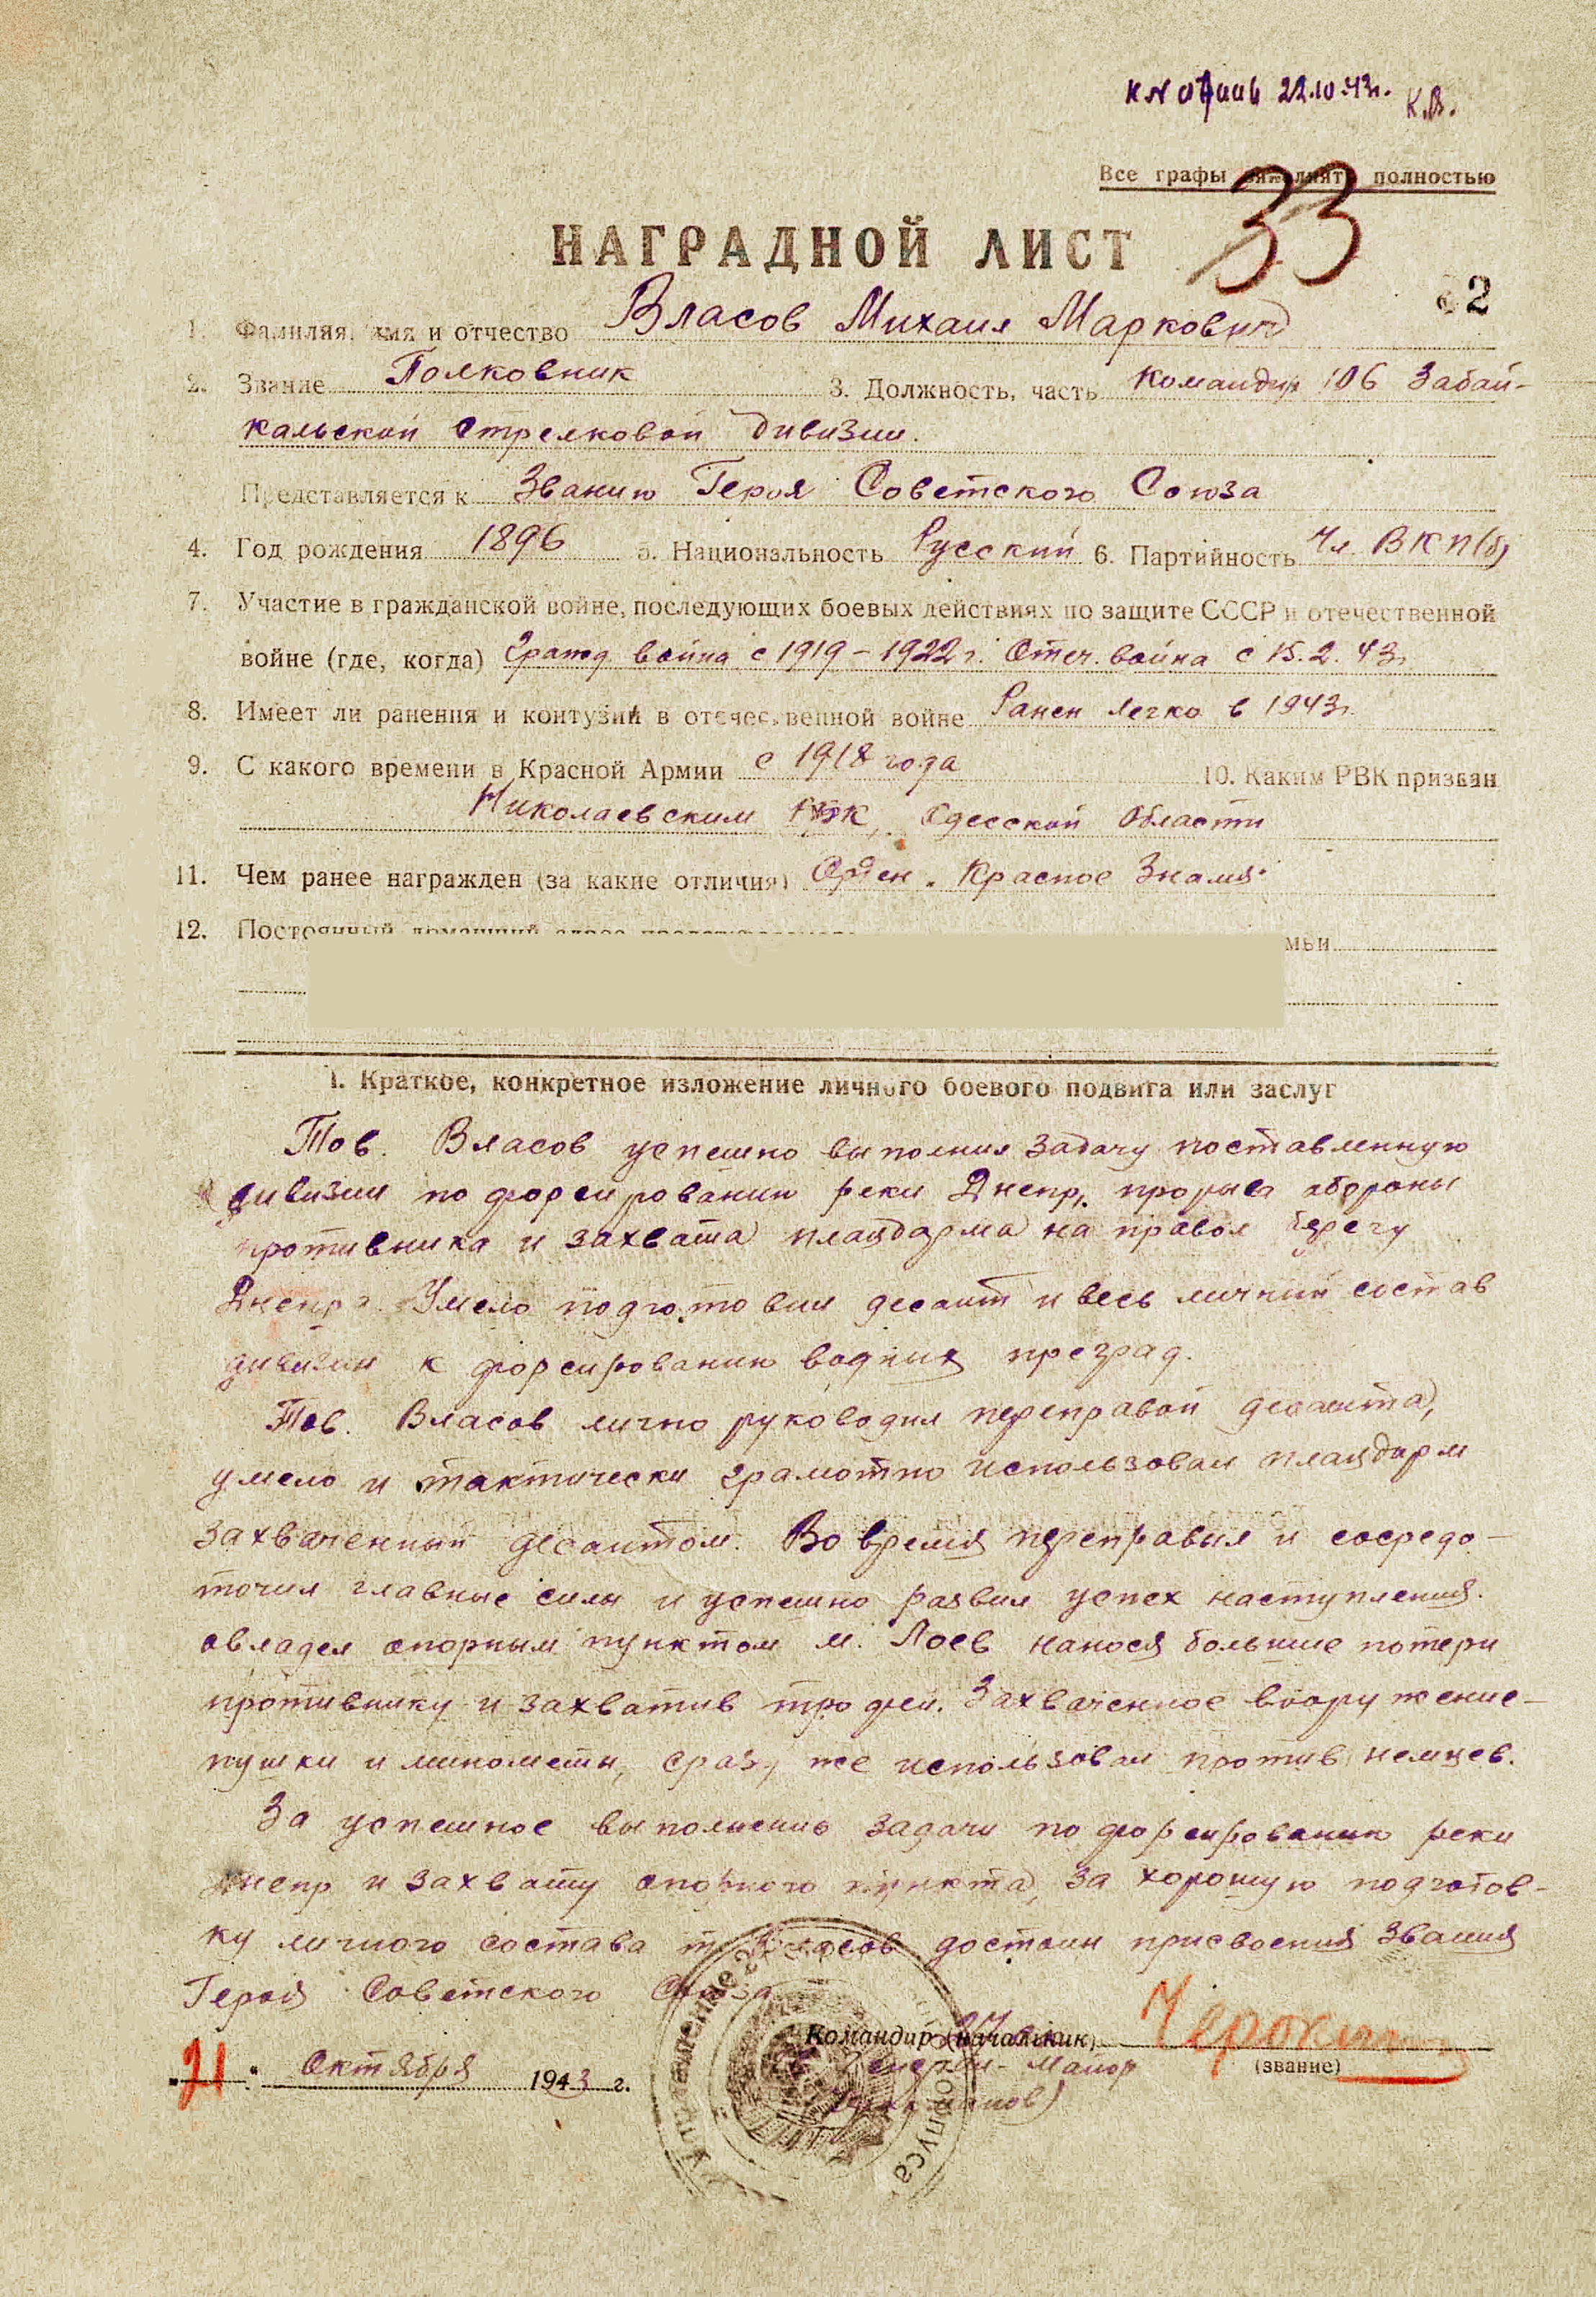 22.10.43г. К.В.
Все графы заполнять полностью
33
НАГРАДНОЙ ЛИСТ
2
1. Фамилия, имя и отчество Власов Михаил Маркович
2. Звание Полковник 3. Должность, часть Командир 106 Забай-
кальской Стрелковой дивизии.
Представляется к Званию Героя Советского Союза
4. Год рождения 1896 5. Национальность Русский 6. Партийность Чл. ВКП(б)
7. Участие в гражданской войне, последующих боевых действиях по защите СССР и отечественной
войне (где, когда) Гражд война с 1919-1922 г. Отеч. война с 15.2.43г
8. Имеет ли ранения и контузии в отечественной войне Ранен легко в 1943г.
9. С какого времени в Красной Армии с 1918 года 10. Каким РВК призван
Николаевским РВК, Одесской Области
11. Чем ранее награжден (за какие отличия) Орден „Красное Знамя"
12. Постоянный домашний адрес
1. Краткое, конкретное изложение личного боевого подвига или заслуг
Тов. Власов успешно выполнил задачу поставленную
дивизии по форсированию реки Днепр, прорыва обороны
противника и захвата плацдарма на правом берегу
Днепра. Умело подготовил десант и весь личный состав
дивизии к форсированию водных преград.
Тов. Власов лично руководил переправой десанта,
умело и тактически грамотно использовал плацдарм
захваченный десантом. Во время переправил и сосредо-
точил главные силы и успешно развил успех наступления.
овладел опорным пунктом м. Лоев нанося большие потери
противнику и захватив трофеи. Захваченное вооружение-
пушки и минометы, сразу же использовал против немцев.
За успешное выполнение задачи по форсированию реки
Днепр и захвату опорного пункта, за хорошую подготов-
ку личного состава т. Власов достоин присвоения звания
Героя Советского Союза
Командир (начальник)
(звание)
Генерал-Майор
„21" Октября 1943 г.
Управление корпуса